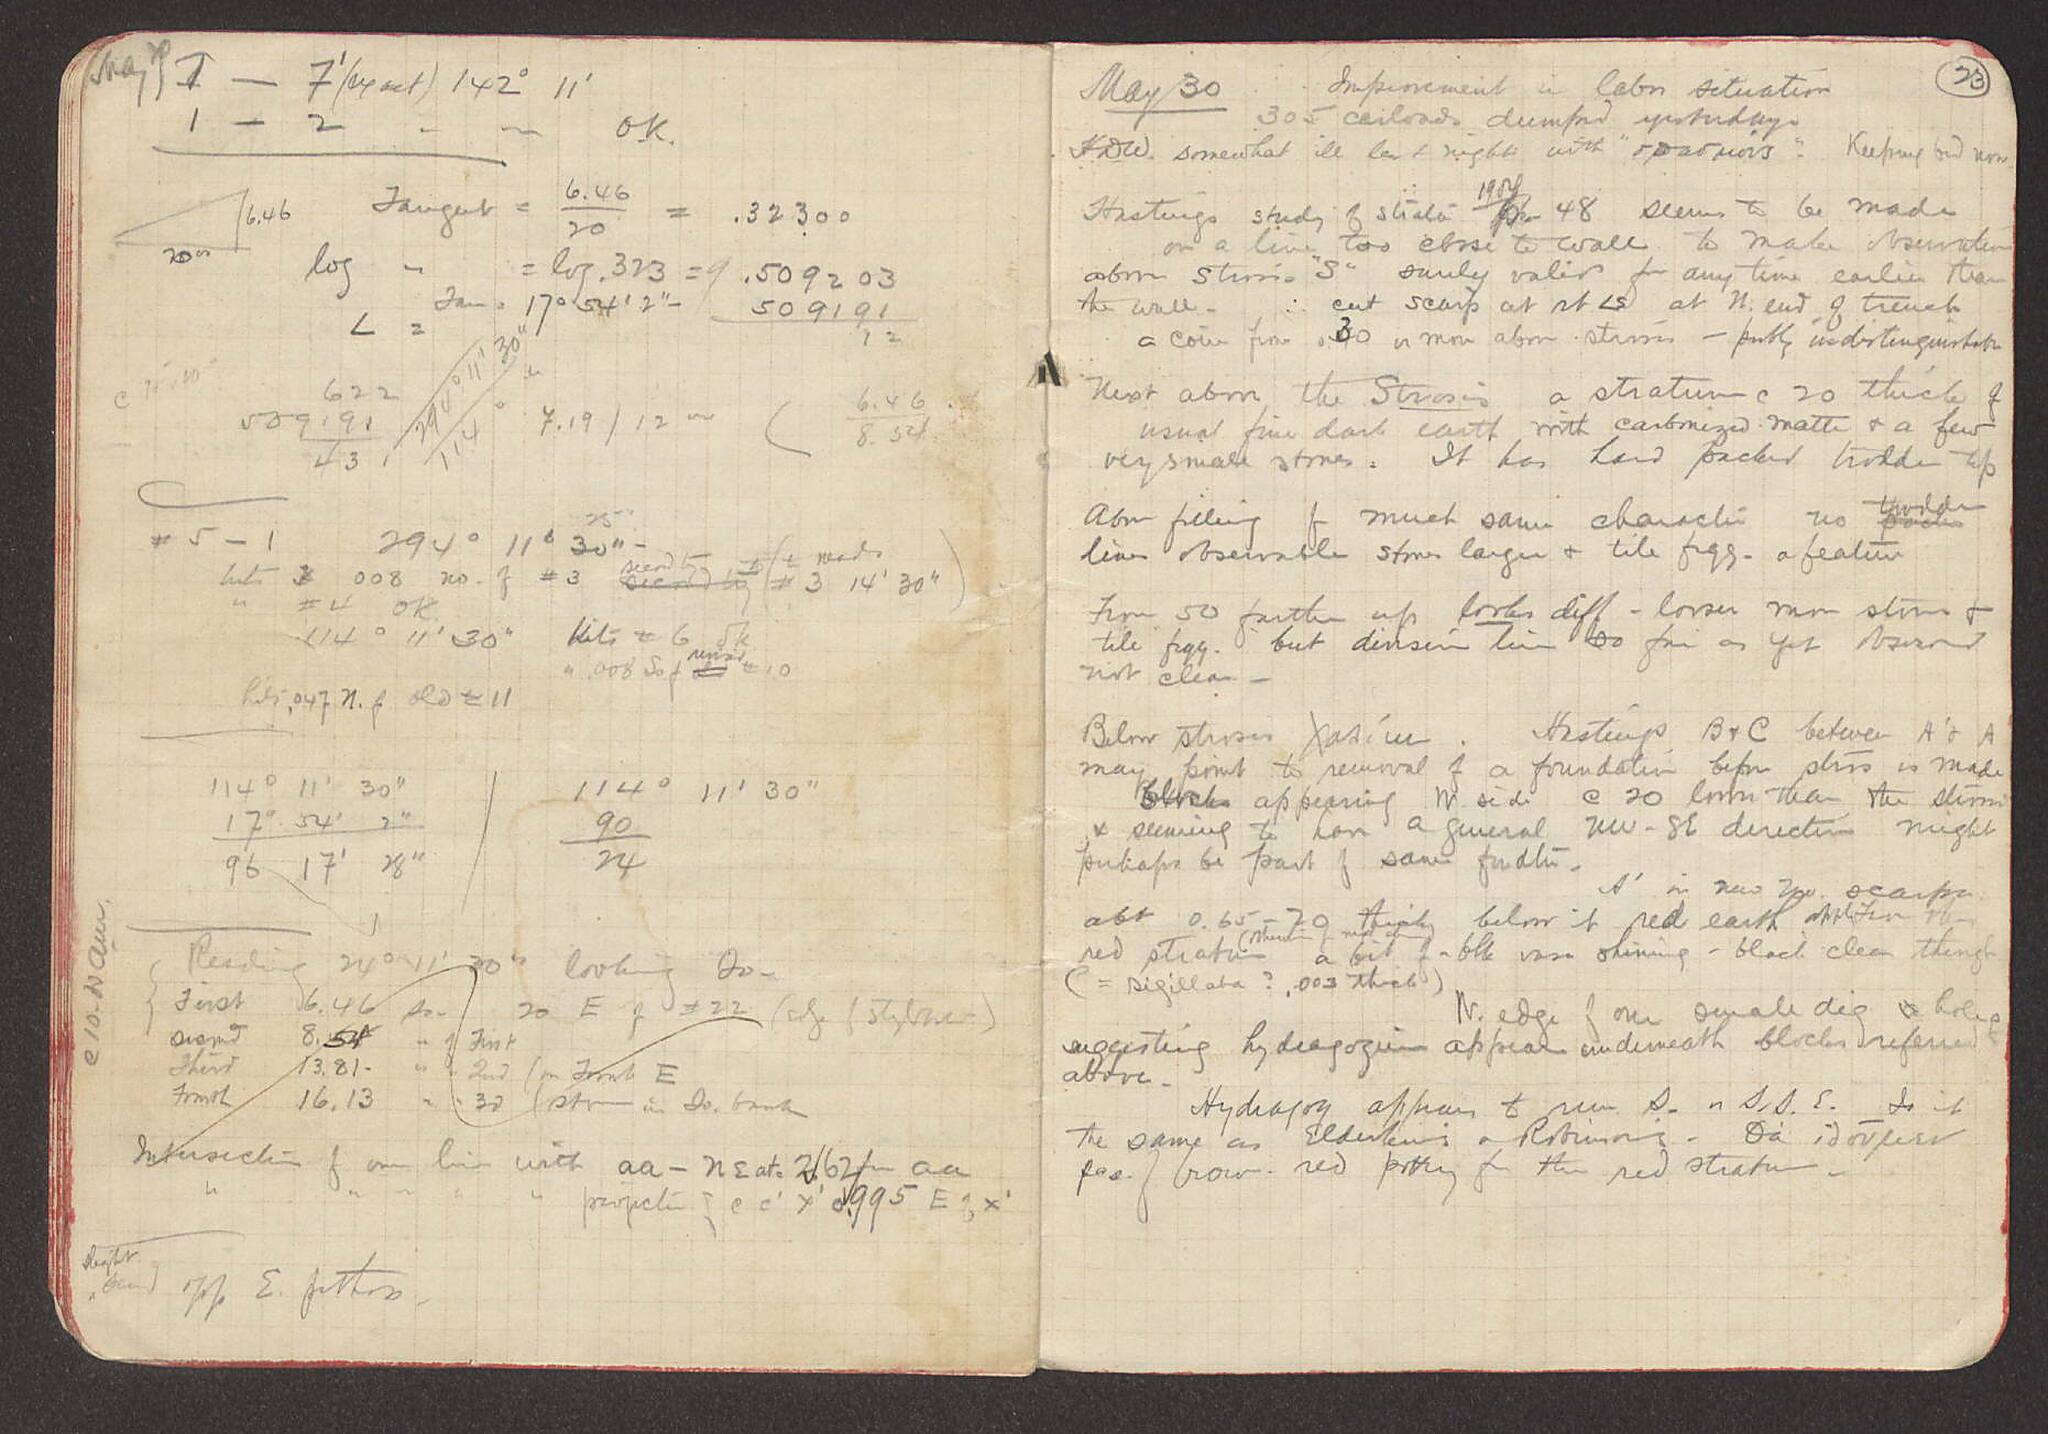 1 — 7' (exact) 142° 11'
1 — 2 " " OK.
6.46
20
Tangent = 6.46 / 20 = .32300
log " = log .323 = 9 .509203
Tan = 17° 54' 2" - 509191
∠ =
12
622
509191
431
294° 11' 30"
114
7.19 / 12
6.46
8.54
# 5 - 1 294° 11' 30" -
hits 008 no. of #3 (# 3 14' 30")
" #4 OK
114° 11' 30" hits # 6 ok
" .008 So of revised # 10
hits .047 N. of old # 11
114° 11' 30" 114° 11' 30"
17° 54' 2" 90
96 17' 28" 24
c 10. N
Reading 24° 11' 30" looking So -
First 6.46 so. 20 E of #22 (edge of stylobate)
second 8.54 " of First
Third 13.81 - " " 2nd (on Front E
Fourth 16.13 " " 3d (stone in So. bank
Intersection of our line with aa - N E at 2.62 from aa
" " " " " projection of c c' x' 0.995 E of x'
opp E. pithos -
23
May 30 Improvement in labor situation
305 carloads dumped yesterday
H.D.W. somewhat ill last night with " ". Keeping bed now
Hastings study of strata 1904 48 seems to be made
on a line too close to wall to make observation
above Strosis "S" surely valid for any time earlier than
the wall - ∴ cut scarp at rt ∠s at N. end of trench
a coin from .30 or more above strosis - indistinguishable
Next above the Strosis a stratum c 20 thick of
usual fine dark earth with carbonized matter & a few
very small stones. It has hard packed trodden top
Above filling of much same character no trodden
lines observable stones larger & tile frgg. a feature
From 50 farther up looks diff - looser more stones &
tile frgg. but division line so far as yet observed
not clear -
Below strosis . Hastings B & C between A' & A
may point to removal of a foundation before strosis is made
Blocks appearing W. side c 20 lower than the strosis
& seeming to have a general NW - SE direction might
perhaps be part of same
A' in new scarp
abt 0.65 - 70 below it red earth
red stratum a bit of blk vase shining - black clean though
(= sigillata ? .003 thick)
W. edge of our small dig & holes
suggesting hydragogeion appear underneath blocks referred
above -
Hydragog appears to run S. or S.S.E. Is it
the same as Elderkin's or Robinson's -
brown - red pottery from the red stratum -